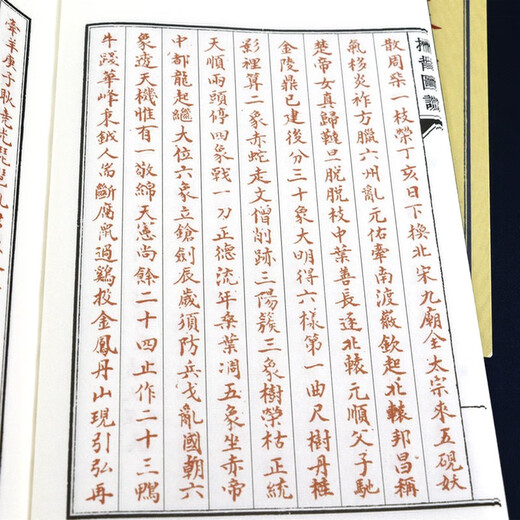 推背圖說
散周桒一枝榮丁亥日下換北宋九廟全太宗來五硯妖
氣移炎祚方臘六州亂元佑牽南渡徽欽起北轅邦昌稱
楚帝女真歸韃旦脫脫枝中葉善長逐北轅元順父子馳
金陵鼎已建後分三十象大明得六樣第一曲尺樹丹桂
影裡算二象赤蛇走文僧削跡三陽簇三象樹榮枯正統
天順兩頭停四象戰一刀正德流年桑葉凋五象坐赤帝
中都龍起繼大位六象立鎗劍辰歲須防兵戈亂國朝六
象透天機惟有一敬綿天憲尚餘二十四止作二十三鴨
牛踐華峰秉鉞人斷腐鼠過鷄投金鳳丹山現引弘再
牽羊庚子耿